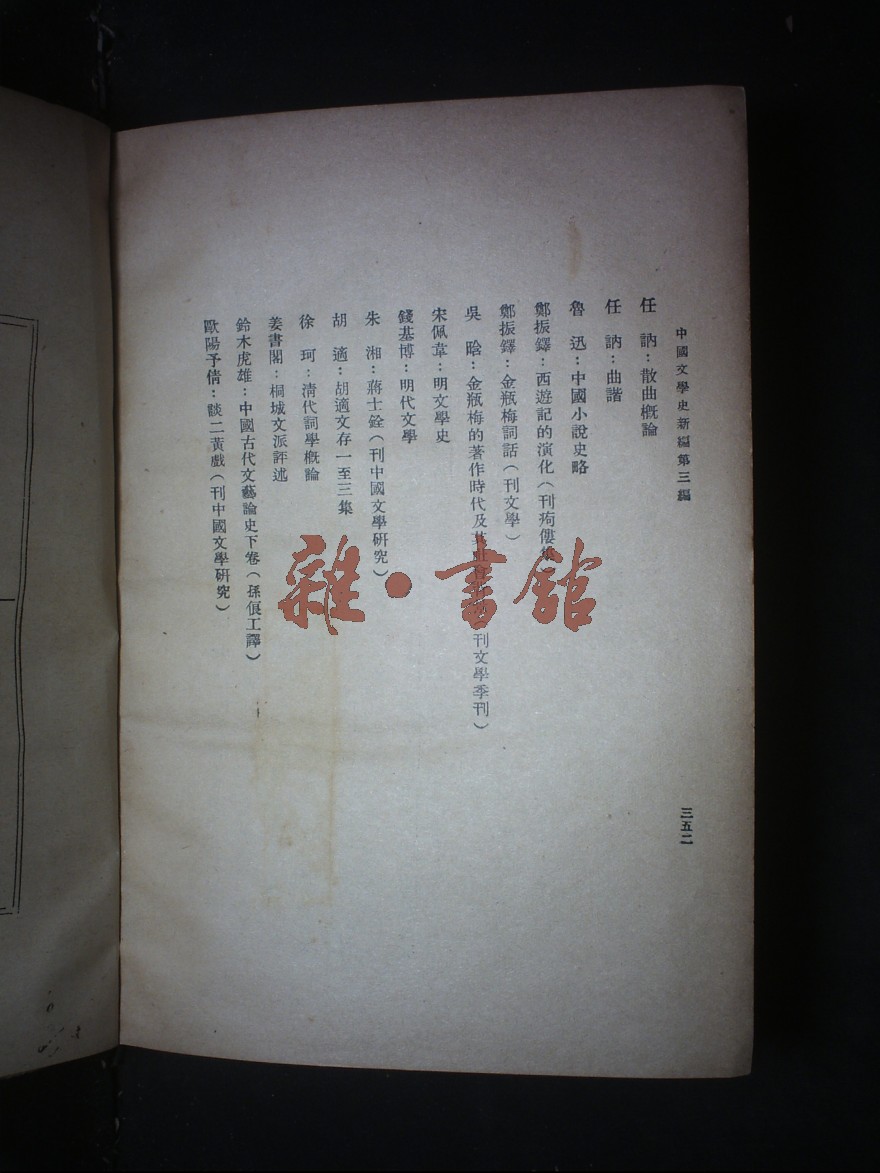 中國文學史新編第三編
三五二
任　訥：散曲概論
任　訥：曲諧
魯　迅：中國小說史略
鄭振鐸：西遊記的演化（刊痀僂集
鄭振鐸：金瓶梅詞話（刊文學）
吳　晗：金瓶梅的著作時代及其社會 刊文學季刊）
宋佩韋：明文學史
錢基博：明代文學
朱　湘：蔣士銓（刊中國文學研究）
胡　適：胡適文存一至三集
徐　珂：清代詞學概論
姜書閣：桐城文派評述
鈴木虎雄：中國古代文藝論史下卷（孫俍工譯）
歐陽予倩：談二黃戲（刊中國文學研究）
雜·書館